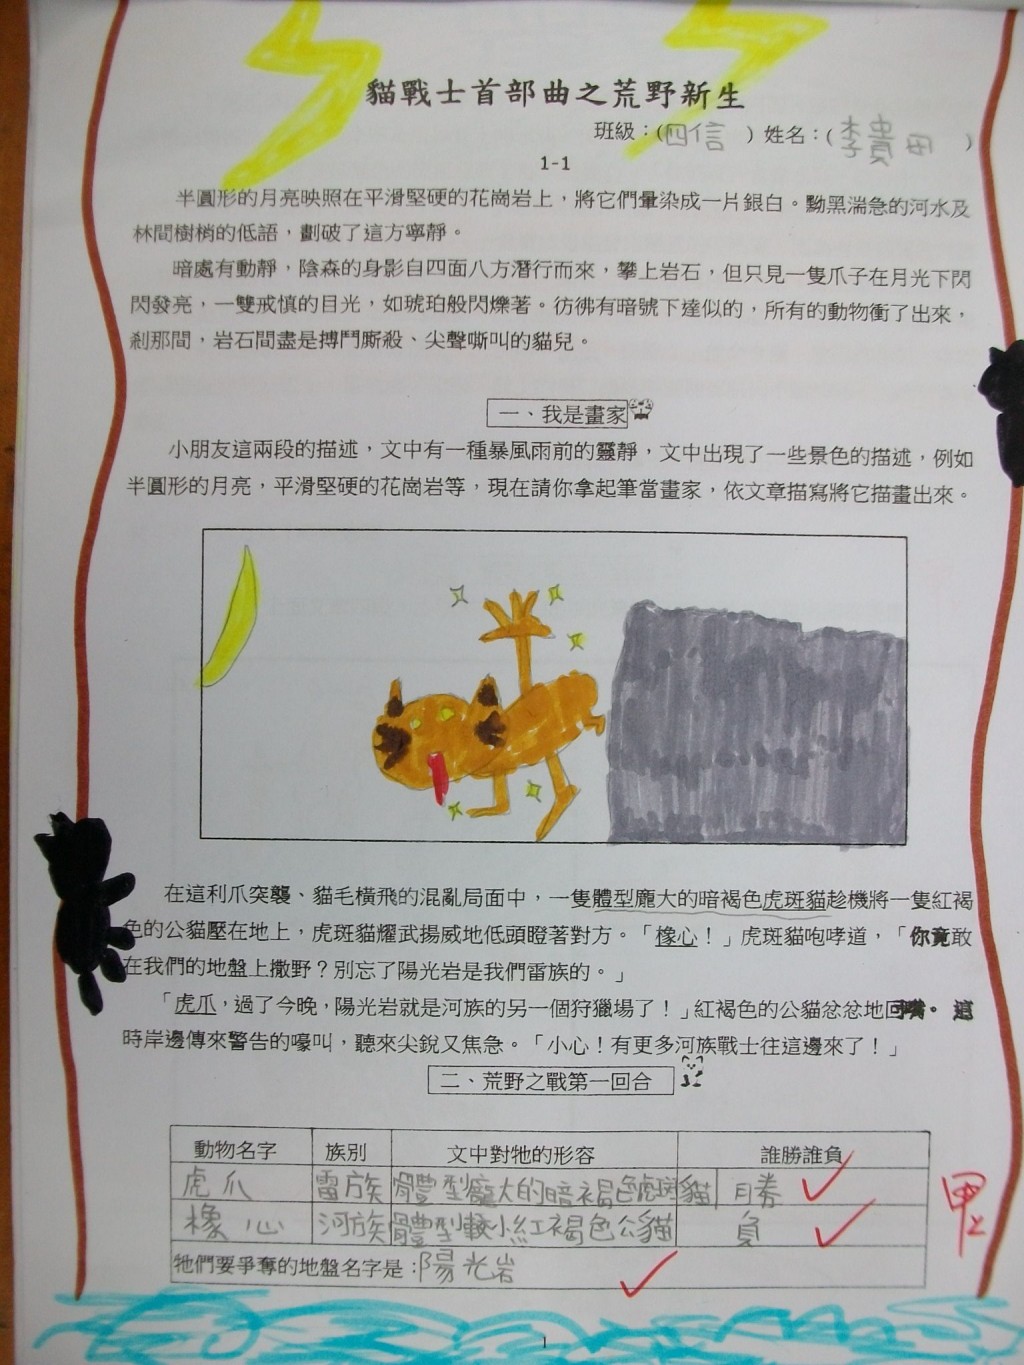 貓戰士首部曲之荒野新生
班級：(四信 ) 姓名：(李貴田 )
1-1
半圓形的月亮映照在平滑堅硬的花崗岩上，將它們暈染成一片銀白。黝黑湍急的河水及
林間樹梢的低語，劃破了這方寧靜。
暗處有動靜，陰森的身影自四面八方潛行而來，攀上岩石，但只見一隻爪子在月光下閃
閃發亮，一雙戒慎的目光，如琥珀般閃爍著。彷彿有暗號下達似的，所有的動物衝了出來，
剎那間，岩石間盡是搏鬥廝殺、尖聲嘶叫的貓兒。
一、我是畫家
小朋友這兩段的描述，文中有一種暴風雨前的靈靜，文中出現了一些景色的描述，例如
半圓形的月亮，平滑堅硬的花崗岩等，現在請你拿起筆當畫家，依文章描寫將它描畫出來。
在這利爪突襲、貓毛橫飛的混亂局面中，一隻體型龐大的暗褐色虎斑貓趁機將一隻紅褐
色的公貓壓在地上，虎斑貓耀武揚威地低頭瞪著對方。「橡心！」虎斑貓咆哮道，「你竟敢
在我們的地盤上撒野？別忘了陽光岩是我們雷族的。」
「虎爪，過了今晚，陽光岩就是河族的另一個狩獵場了！」紅褐色的公貓忿忿地回嘴。這
時岸邊傳來警告的嚎叫，聽來尖銳又焦急。「小心！有更多河族戰士往這邊來了！」
二、荒野之戰第一回合
動物名字 族別 文中對牠的形容 誰勝誰負
虎爪 雷族 體型龐大的暗褐色虎斑貓 勝
橡心 河族 體型較小紅褐色公貓 負
甲上
牠們要爭奪的地盤名字是：陽光岩
1